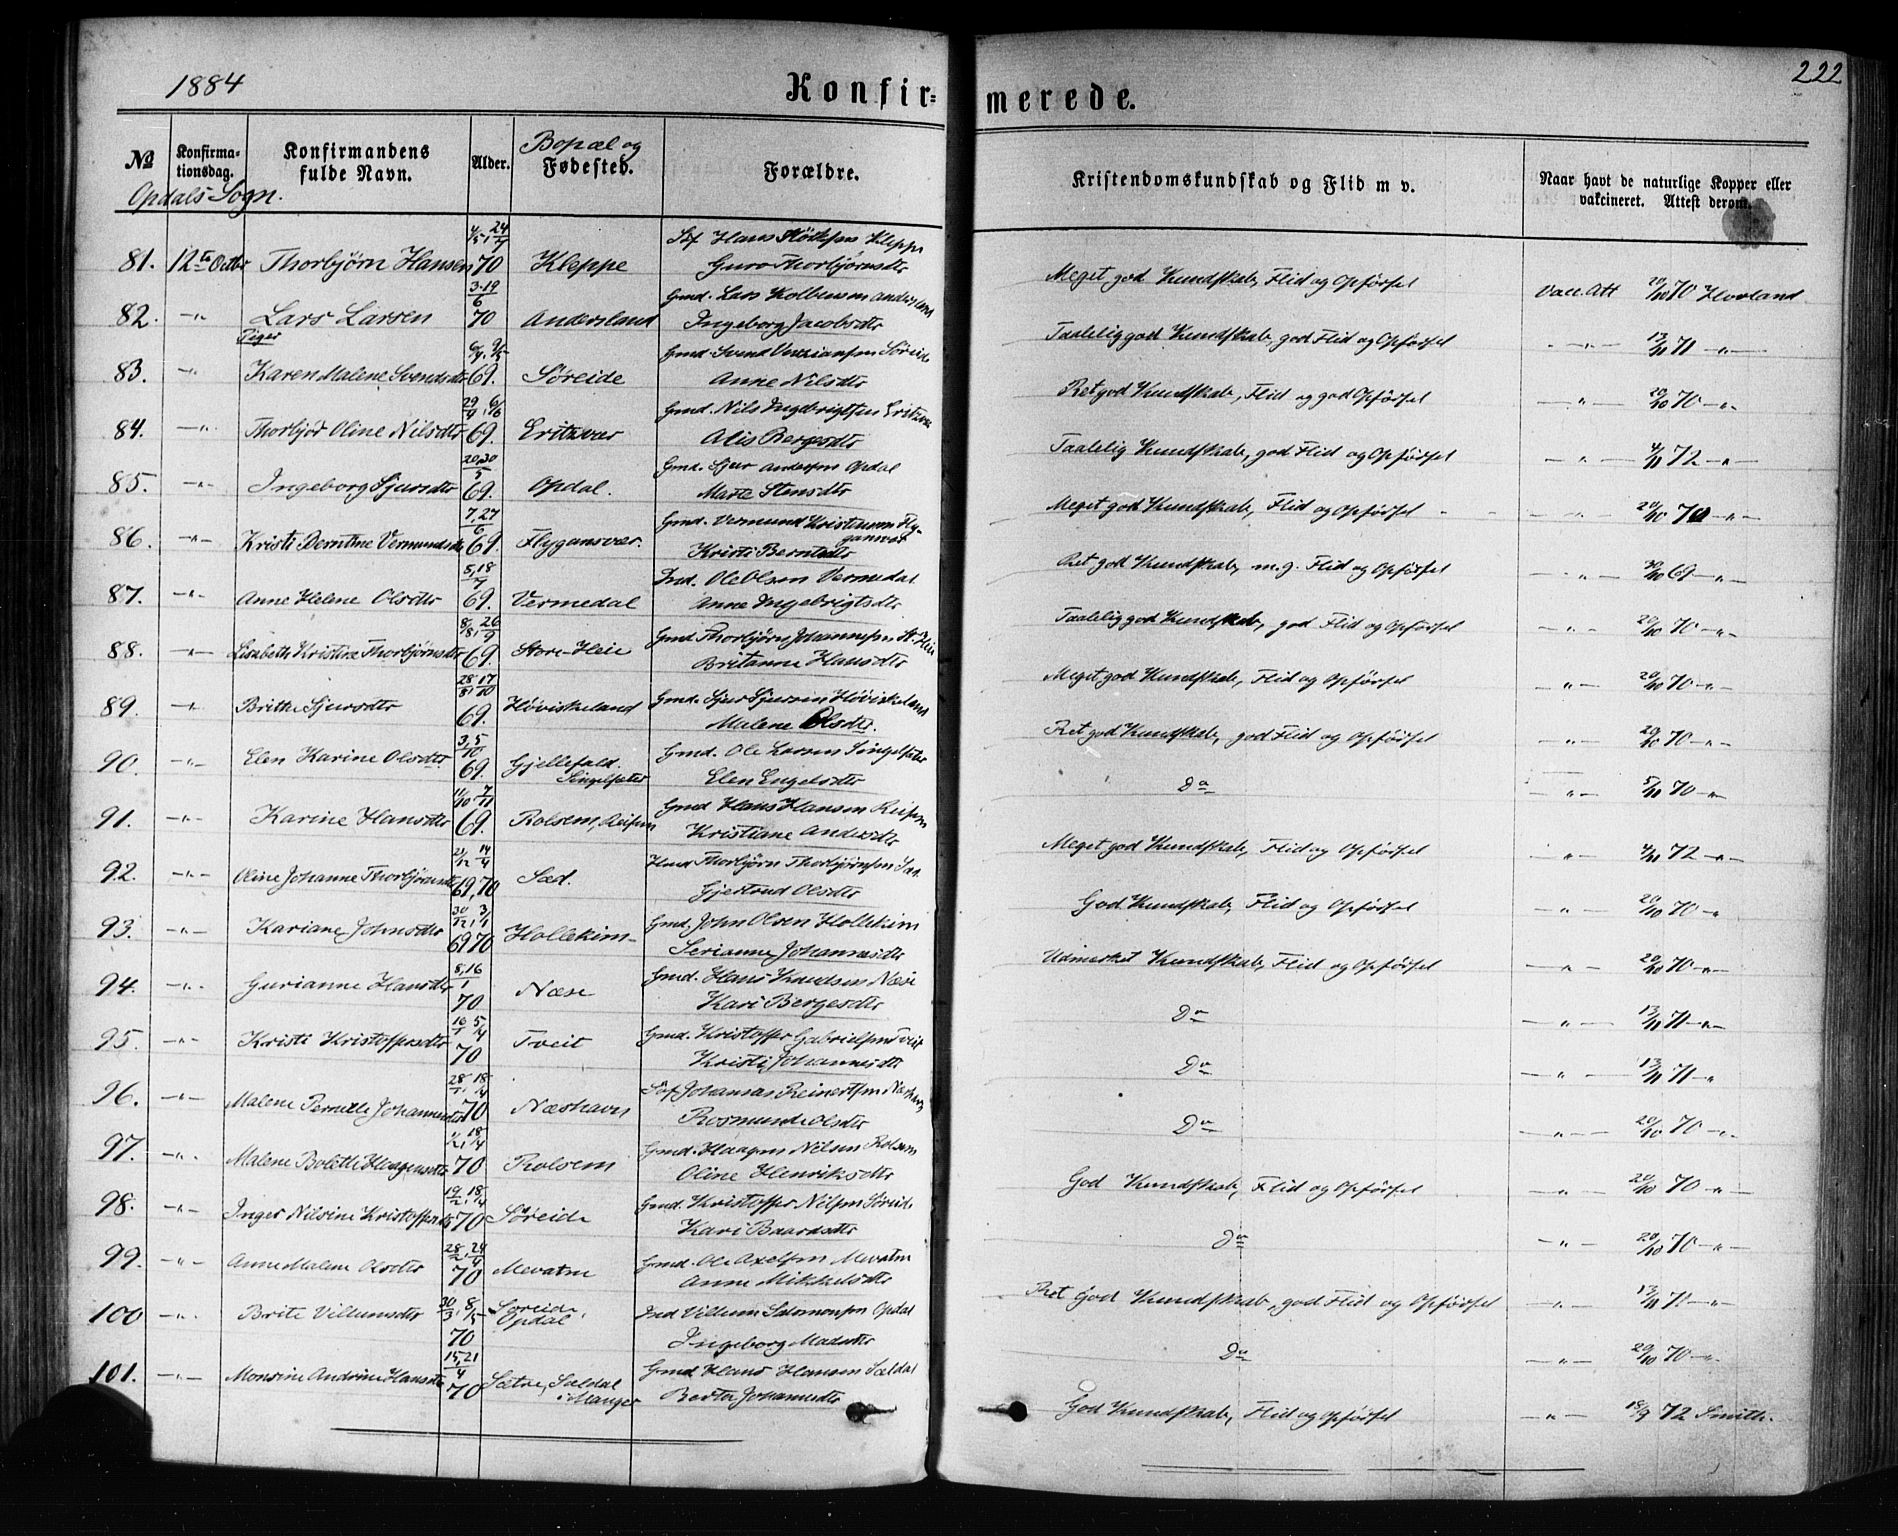 1884
Konfir=merede.
222
No
Konfirmationsdag.
Konfirmandens fulde Navn.
Alder.
Bopæl og Fødested.
Forældre.
Kristendomskundskab og Flid m v.
Naar havt de naturlige Kopper eller vakcineret. Attest derom.
Opdals Sogn.
81. 12te Octbr Thorbjørn Hansen 70 Kleppe Hans Kleppe
Guro Thorbjørnsdtr
Meget god Kundskab, Flid og Opførsel Vacc. Att 20/10 70 Hovland
82. -"- Lars Larsen 3.19/6 70 Andersland Gmd. Lars Kolbensen Andersland
Ingeborg Jacobsdtr
Taalelig god Kundskab, god Flid og Opførsel -"- 13/11 71 -"-
Piger
83. -"- Karen Malene Svendsdtr 69. Søreide Gmd. Svend Søreide
Anne Nilsdtr
Ret god Kundskab, Flid og god Opførsel -"- 20/10 70 -"-
84. -"- Thorbjør Oline Nilsdtr 29/4, 6/6 69. Eritsvær Gmd. Nils Ingebrigtsen Eritsvær
Alis Bergesdtr
Taalelig Kundskab, god Flid og Opførsel -"- 4/11 72 -"-
85. -"- Ingeborg Sjursdtr 20,30/5 69. Opdal. Gmd. Sjur Andersen Opdal
Marte Stensdtr
Meget god Kundskab, Flid og Opførsel -"- 20/10 70 -"-
86. -"- Kristi Berntine Vermundsdtr 7,27/6 69. Flygansvær. Gmd. Vermund Kristensen Flygansvær
Kristi Berntsdtr
Ret god Kundskab, m.g. Flid og Opførsel -"- 30/10 69 -"-
87. -"- Anne Helene Olsdtr 5,18/7 69. Vermedal Ind. Ole Olsen Vermedal
Anne Ingebrigtsdtr
Taalelig god Kundskab, god Flid og Opførsel -"- 20/10 70 -"-
88. -"- Lisabeth Kristine Thorbjørnsdtr 8/8, 26/9 69. Store-Heie Gmd Thorbjørn Johannesen St. Heie
Britanne Hansdtr
Meget god Kundskab, Flid og Opførsel -"- 20/10 70 -"-
89. -"- Brithe Sjursdtr 28/8, 17/10 69. Høviskeland Gmd. Sjur Sjursen Høviskeland
Malene Olsdtr.
Ret god Kundskab, god Flid og Opførsel -"- 20/10 70 -"-
90. -"- Elen Karine Olsdtr 3,5/10 69. Gjellefald. Singelsæter Gmd. Ole Larsen Singelsæter
Elen Engelsdtr
Do -"- 5/11 70 -"-
91. -"- Karine Hansdtr 11/10, 7/11 69. Rolsem, Reipen Gmd Hans Hansen Reipen
Kristiane Andersdtr
Meget god Kundskab, Flid og Opførsel -"- 4/11 72 -"-
92. -"- Oline Johanne Thorbjørnsdtr 21/12, 14/4 69,70 Sæd. Thorbjørn Thorbjørnsen
Gjertrud Olsdtr
God Kundskab, Flid og Opførsel -"- 20/10 70 -"-
93. -"- Kariane Johnsdtr 30/12, 3/4 69 70 Hollekim Gmd. John Olsen Hollekim
Serianne Johannesdtr
Udmerket Kundskab, Flid og Opførsel -"- 20/10 70 -"-
94. -"- Gurianne Hansdtr 8,16/1 70 Næse Gmd. Hans Knudsen Næse
Kari Bergesdtr
Do -"- 13/11 71 -"-
95. -"- Kristi Kristoffersdtr 16/1, 5/4 70 Tveit Gmd. Kristoffer Gabrielsen Tveit
Kristi Johannesdtr
Do -"- 13/11 71 -"-
96. -"- Malene Pernelle Johannesdtr 28/1, 18/4 70 Næshavn Johannes Reinertsen Næshavn
Rosmunde Olsdtr
Do -"- 20/10 70 -"-
97. -"- Malene Bolette Haagensdtr 70 Rolsem Gmd. Haagen Nilsen Rolsem
Oline Henriksdtr
God Kundskab, Flid og Opførsel -"- 20/10 70 -"-
98. -"- Inger Nilsine Kristoffersdtr 19/2, 18/4 70 Søreide Gmd. Kristoffer Nilsen Søreide
Kari Baardsdtr
Do -"- 20/10 70 -"-
99. -"- Anne Malene Olsdtr 28/2, 24/4 70 Mevatne Gmd. Ole Axelsen Mevatne
Anne Mikkelsdtr
Ret God Kundskab, god Flid og Opførsel -"- 13/11 71 -"-
100 -"- Brite Villumsdtr 30/3, 8/5 70 Søreide, Opdal Ind Villum Salomonsen Opdal
Ingeborg Madsdtr
Do -"- 20/10 70 -"-
101. -"- Monsine Andrine Hansdtr 15,21/4 70 Sætre, Sældal i Manger Gmd Hans Hansen Sældal
Berte Johannesdtr
God Kundskab, Flid og Opførsel -"- 18/9 72 Smith.